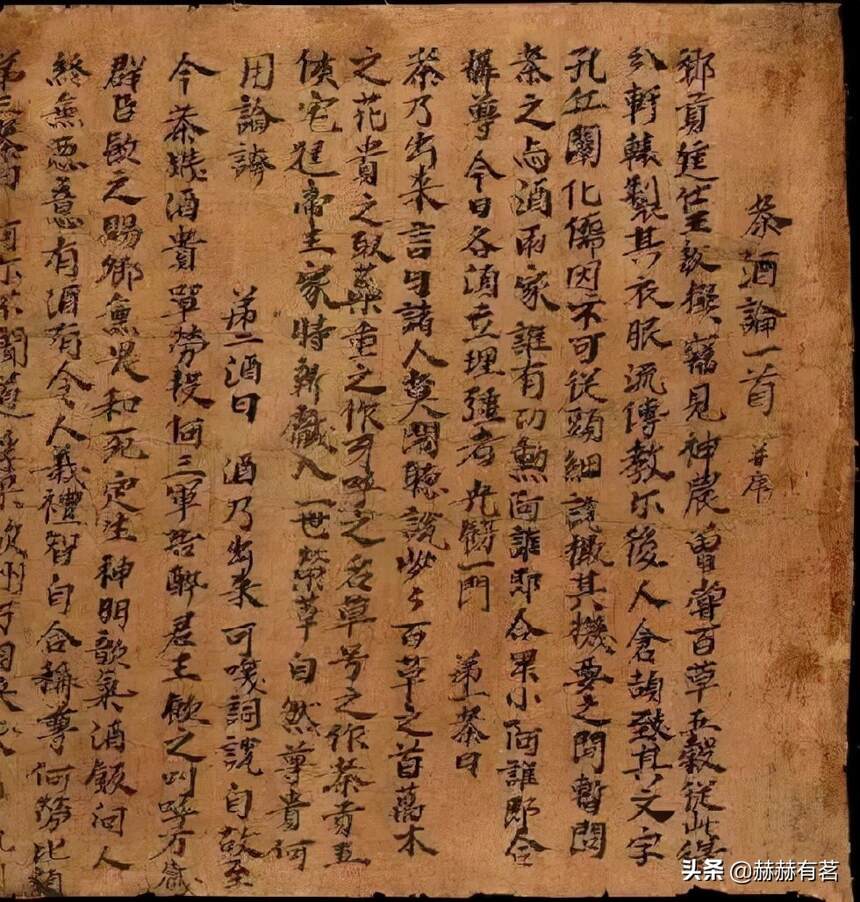 茶酒論一首 并序
鄉貢進仕王敷撰 竊見神農曾嘗百草五穀從此得
分軒轅製其衣服流傳教示後人倉頡致其文字
孔丘闡化儒因不可從頭細說撮其機要之間暫問
茶之与酒兩家誰有功勳阿誰即合卑小阿誰即合
稱尊今日各須立理強者光飾一門 第一茶曰
茶乃出来言曰諸人莫鬧聽說些々百草之首萬木
之花貴之取蘂重之作呼之名草号之作茶貢五
侯宅進帝王家時新獻入一世榮自然尊貴何
用論誇 第二酒曰 酒乃出来可咲詞說自故至
今茶賤酒貴單勞投河三軍告醉君王飲之叫呼万歲
群臣飲之賜卿無畏和死定生神明歆氣酒飯向人
終無惡意有酒有令人義禮智自合稱尊何勞比類
頭条 @赫赫有茗